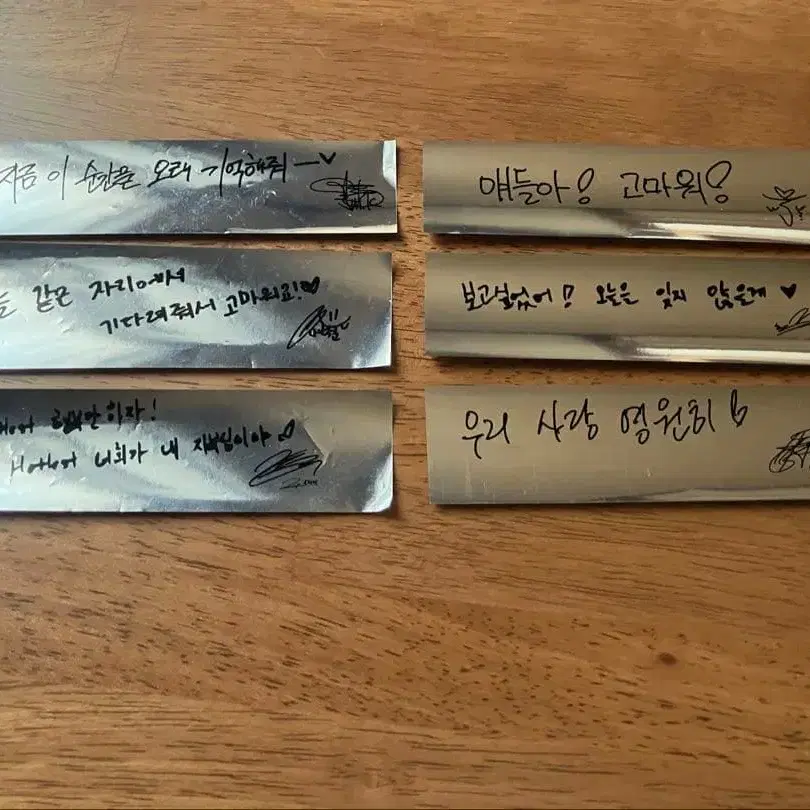 지금 이 순간을 오래 기억해줘 ー♥
같은 자리에서
기다려줘서 고마워요!♡
행복만하자!
너희가 내 자부심이야
얘들아! 고마워!
보고싶었어! 오늘은 잊지 않을게 ♥
우리 사랑 영원히